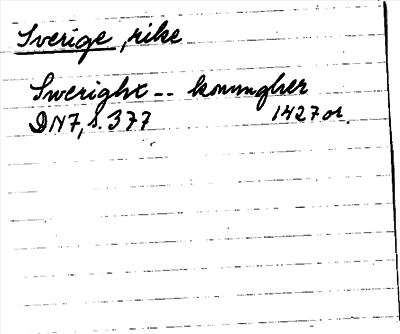 Sverige, rike
Sweright -- konungher
DN7, s. 377 1427 or.